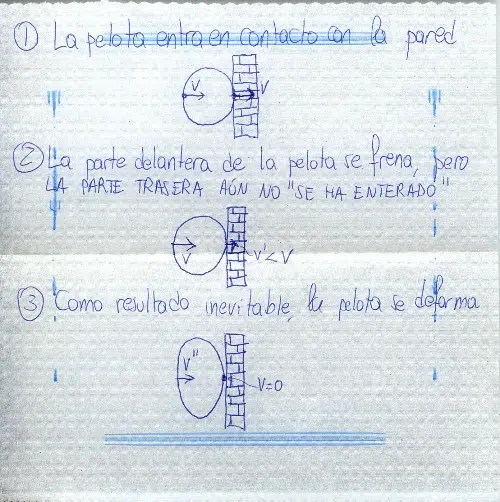 ① La pelota entra en contacto con la pared
V
V
② La parte delantera de la pelota se frena, pero
LA PARTE TRASERA AÚN NO "SE HA ENTERADO"
V
V'<V
③ Como resultado inevitable, la pelota se deforma
V"
V=0